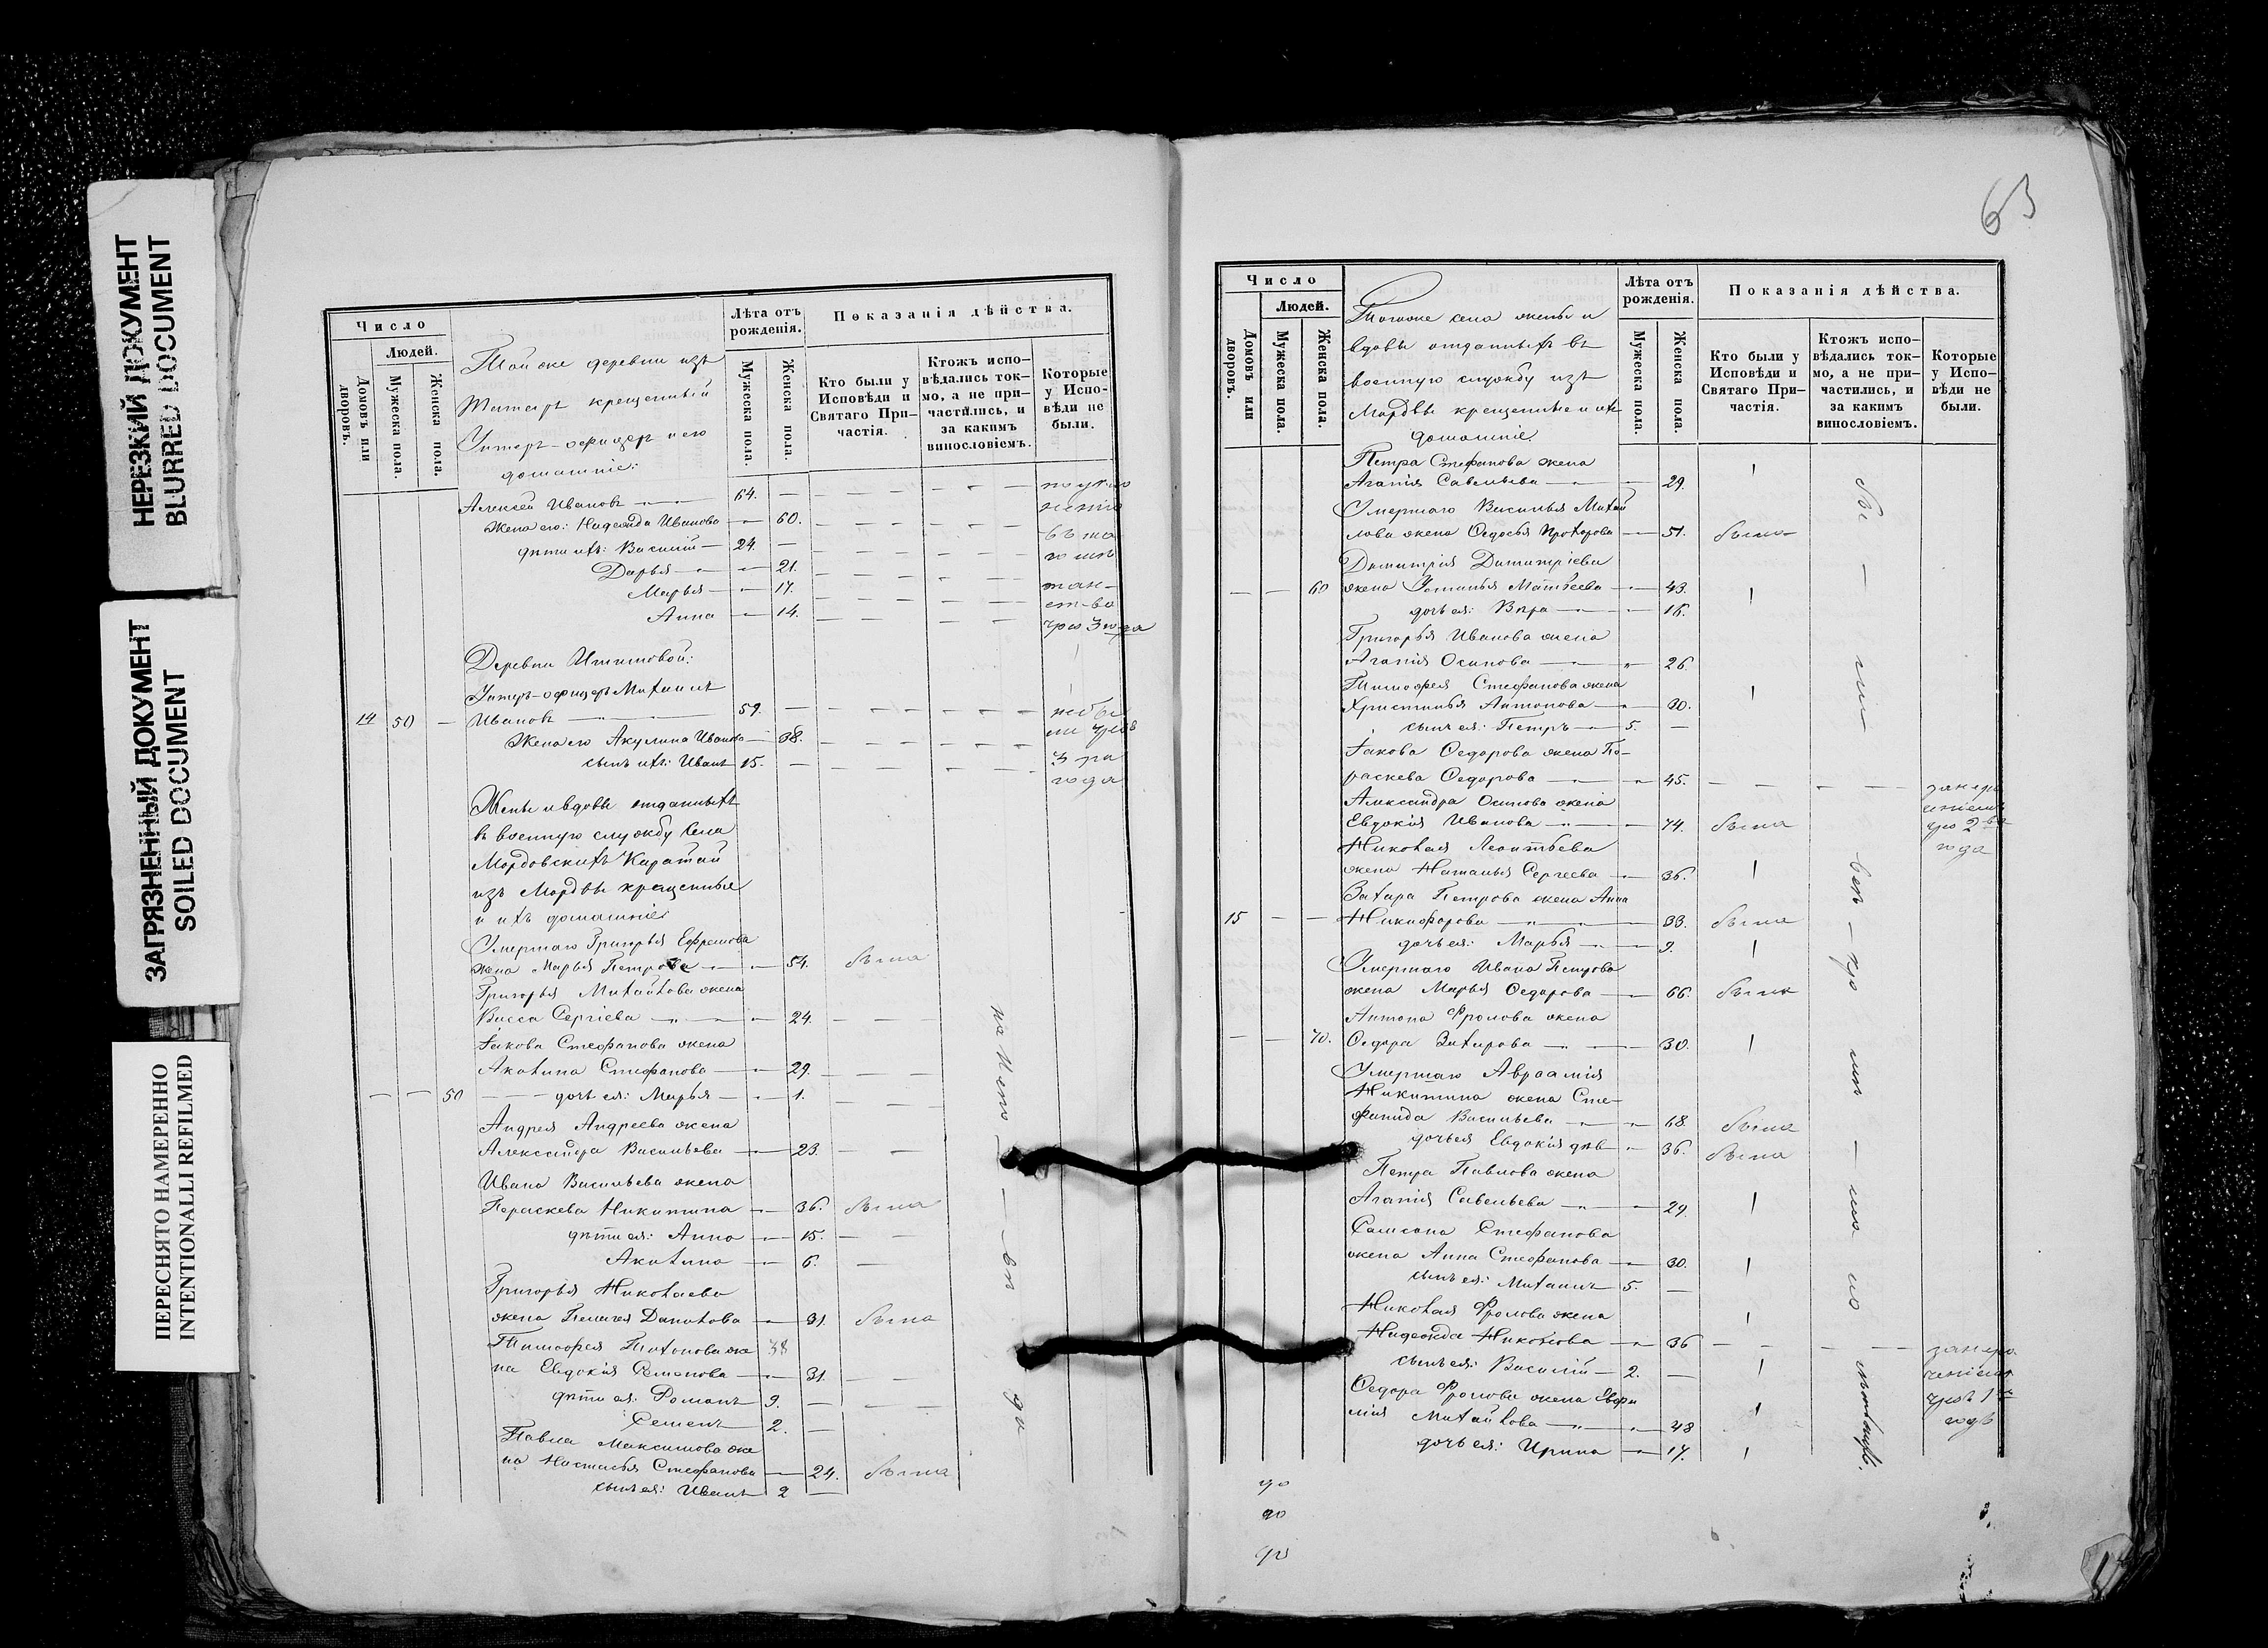 НЕРЕЗКИЙ ДОКУМЕНТ
BLURRED DOCUMENT
ЗАГРЯЗНЕННЫЙ ДОКУМЕНТ
SOILED DOCUMENT
ПЕРЕСНЯТО НАМЕРЕННО
INTENTIONALLI REFILMED
Число
Людей.
Домовъ или дворовъ.
Мужеска пола.
Женска пола.
Лѣта отъ рожденія.
Мужеска пола.
Женска пола.
Показанія дѣйства.
Кто были у Исповѣди и Святаго Причастія.
Ктожъ исповѣдались токмо, а не причастились, и за какимъ винословіемъ.
Которые у Исповѣди не были.
Той же деревни изъ
Татаръ крещенный
Унтеръ-офицеръ и его
домашніе:
Алексей Ивановъ 64. —
Жена его: Надежда Иванова — 60.
дѣти ихъ: Василій — 24. —
Дарья — 21.
Марья — 17.
Анна — 14.
Деревни
Унтеръ-офицеръ Михаилъ
14 50 — Ивановъ 59. —
Жена его Акулина Иванова — 38.
сынъ ихъ: Иванъ 15. —
3 года
Жены и вдовы отданныхъ
въ военную службу села
Мордовскихъ Каратай
изъ Мордвы крещенные
и ихъ домашніе
Умершаго Григорья Ефремова
жена Марья Петрова — 54. была
Григорья Михайлова жена
Васса Сергіева — 24.
Іакова Стефанова жена
Акилина Стефанова — 29.
— — 50 дочь ея: Марья — 1.
Андрея Андреева жена
Александра Васильева — 23.
Ивана Васильева жена
Параскева Никитина — 36. была
дѣти ея: Анна — 15.
Акилина — 6.
Григорья Николаева
жена Пелагея Данилова — 31. была
Тимофея Тихонова же 38
на Евдокія Семенова — 31.
дѣти ея: Романъ 9. —
Семенъ 2. —
Павла Максимова же
на Настасья Стефанова — 24. была
сынъ ея: Иванъ 2 —
63
Число
Людей.
Домовъ или дворовъ.
Мужеска пола.
Женска пола.
Лѣта отъ рожденія.
Мужеска пола.
Женска пола.
Показанія дѣйства.
Кто были у Исповѣди и Святаго Причастія.
Ктожъ исповѣдались токмо, а не причастились, и за какимъ винословіемъ.
Которые у Исповѣди не были.
Тогоже села жены и
вдовы отданныхъ въ
военную службу изъ
Мордвы крещенные и ихъ
домашніе.
Петра Стефанова жена
Агапія Савельева — 29.
Умершаго Василья Михай
лова жена Ѳедосья Прохорова — 51. была
Димитрія Димитріева
— — 60 жена Устинья Матвѣева — 43.
дочь ея: Вѣра — 16.
Григорья Иванова жена
Агапія Осипова — 26.
Тимофея Стефанова жена
Христинья Антонова — 30.
сынъ ея: Петръ — 5. —
Іакова Ѳедорова жена Па-
раскева Ѳедорова — 45.
Александра Осипова жена
Евдокія Иванова — 74. была
Николая Леонтьева
жена Наталья Сергеева — 36.
Захара Петрова жена Анна
15 — — Никифорова — 33. была
дочь ея: Марья — 9.
Умершаго Ивана Петрова
жена Марья Ѳедорова — 66. была
Антона Фролова жена
— — 70. Ѳедора Захарова — 30.
Умершаго Авраамія
Никитина жена Сте-
фанида Васильева — 68. была
дочь ея Евдокія дѣв — 36. была
Петра Павлова жена
Агапія Савельева — 29.
Самсона Стефанова
жена Анна Стефанова — 30.
сынъ ея: Михаилъ 5. —
Николая Фролова жена
Надежда — 36
сынъ ея: Василій — 2. —
Ѳедора Фролова жена Евфи
мія Михайлова — 48
дочь ея: Ирина — 17.